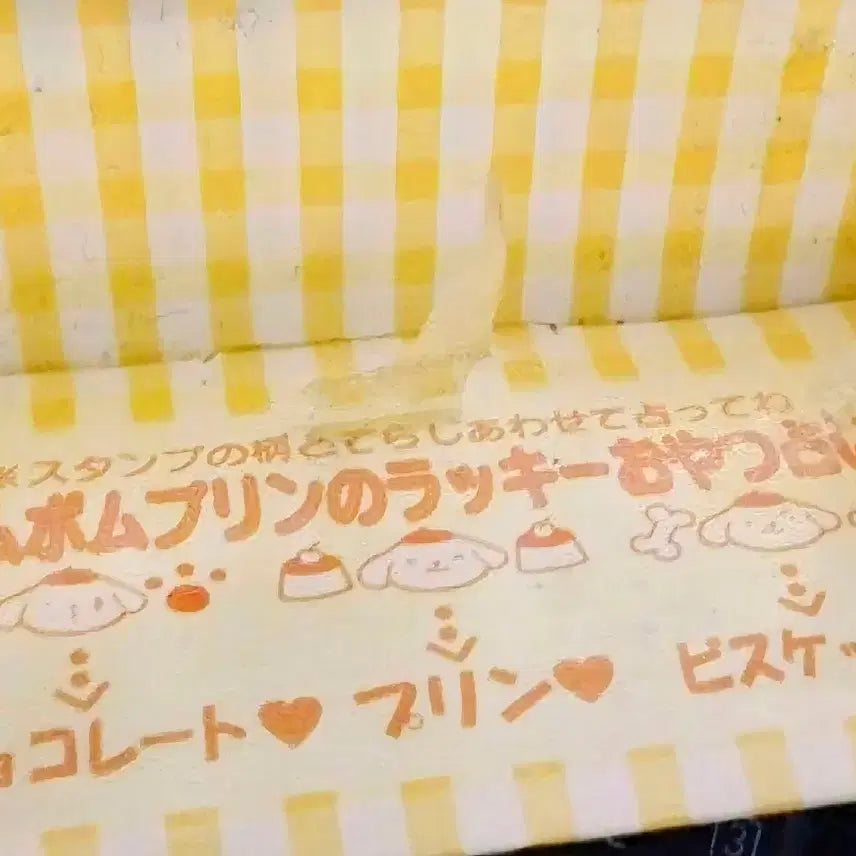 ※スタンプの柄とてらしあわせて占ってね
ムポムプリンのラッキーおやつ占い
ョコレート♥ プリン♥ ビスケッ
[3]